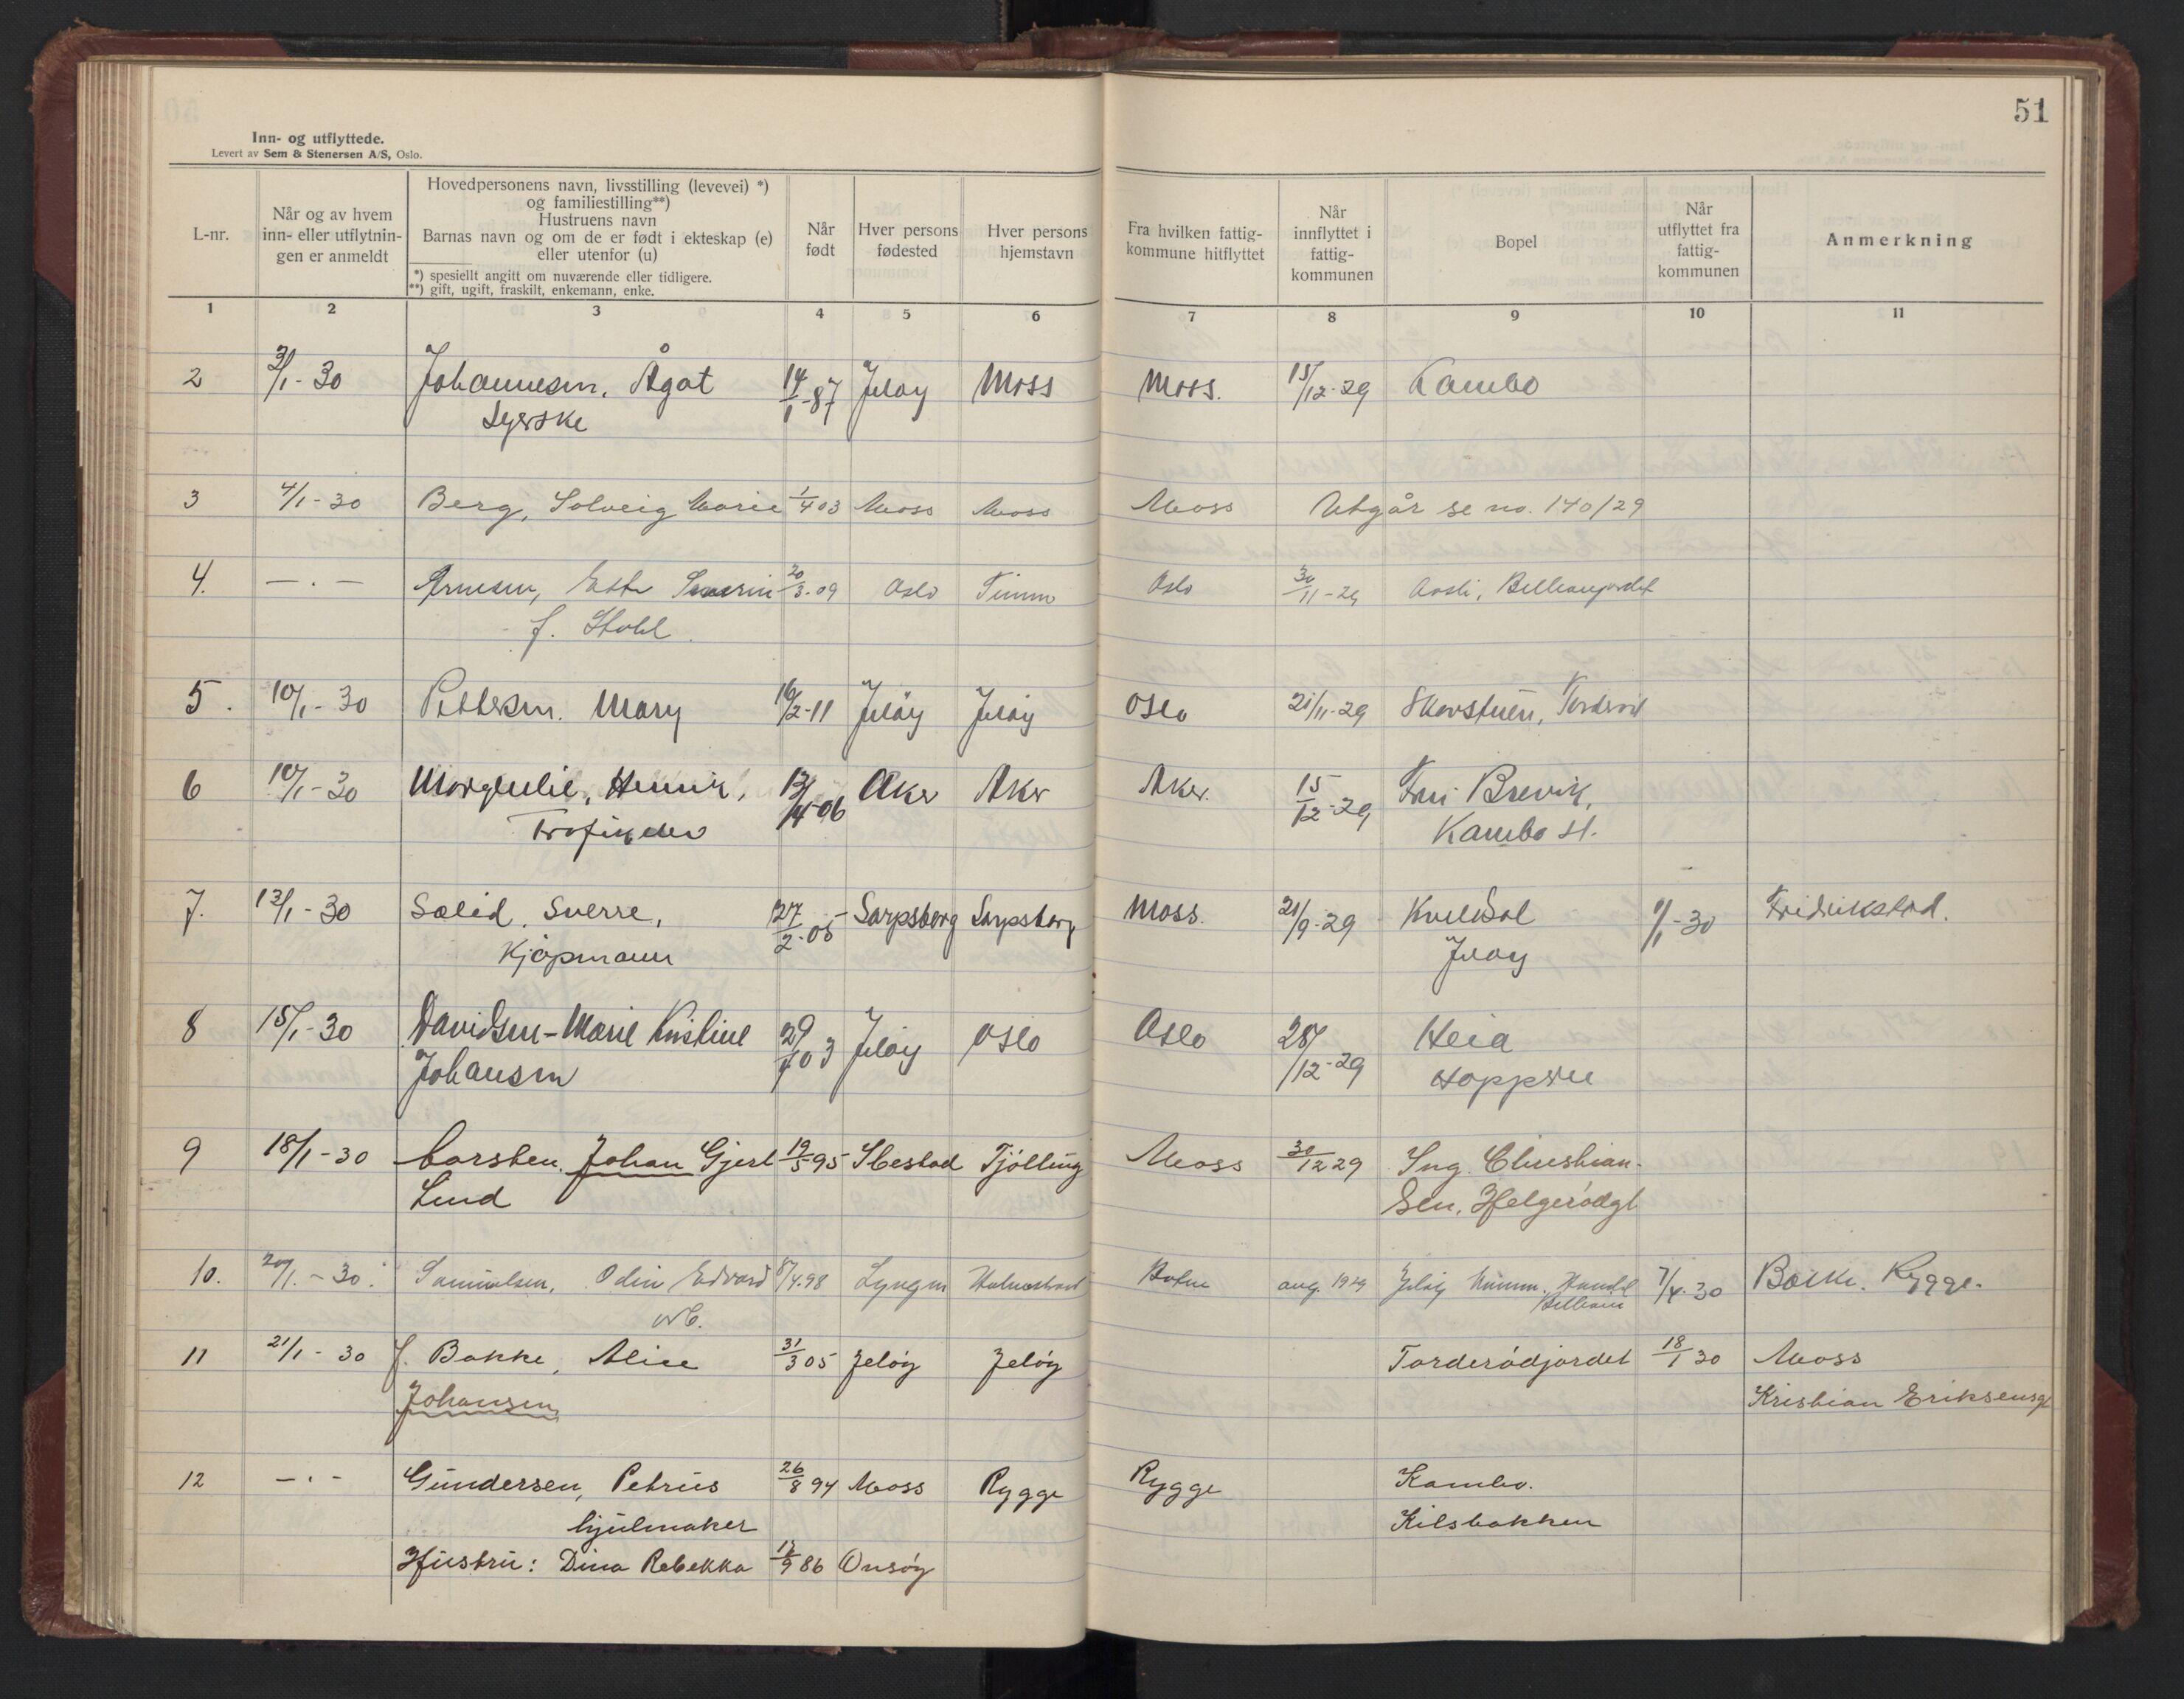 51
Inn- og utflyttede.
Levert av Sem & Stenersen A/S, Oslo.
L-nr.
Når og av hvem inn- eller utflytnin-gen er anmeldt
Hovedpersonens navn, livsstilling (levevei) *)
og familiestilling**)
Hustruens navn
Barnas navn og om de er født i ekteskap (e)
eller utenfor (u)
*) spesiellt angitt om nuværende eller tidligere.
**) gift, ugift, fraskilt, enkemann, enke.
Når født
Hver persons fødested
Hver persons hjemstavn
Fra hvilken fattig-kommune hitflyttet
Når innflyttet i fattig-kommunen
Bopel
Når utflyttet fra fattig-kommunen
Anmerkning
1 2 3 4 5 6 7 8 9 10 11
2 3/1-30 Johannesen, Ågot 14/1-87 Jeløy Moss Moss. 15/12-29 Kambo
Syerske
3 4/1-30 Berg, Solveig Marie 1/4 03 Moss Moss Moss Utgår se no. 140/29
4. — . — Arnesen, 20/3-09 Oslo Oslo 30/11-29
f.
5. 10/1-30 Pettersen. Mary 16/2-11 Jeløy Jeløy Oslo 21/11-29
6 10/1-30 Henrik, 13/4-06 Aker Aker Aker. 15/12-29 Brevik,
Kambo st.
7. 13/1-30 Solid, Sverre, 27/2-05 Sarpsborg Sarpsborg Moss. 21/9-29 1/1-30 Fredrikstad.
Kjøpmann Jeløy
8 15/1-30 Davidsen-Marie Kristine 29/ 03 Jeløy Oslo Oslo 28/12-29 Heia
Johansen Hoppern
9 18/1-30 Carsten. Johan Gjert 19/5 95 Ibestad Tjölling Moss 30/12 29 Ing. Christian-
Lund sen, Helgerödgt
10. 20/1.-30. Samuelsen, Odin Edvard 8/4.98 Lyngør Holmestrand Botne aug. 1929 Jeløy 7/4-30 Rygge.
11 21/1-30 f. Bakke, Alice 31/3 05 Jeløy Jeløy Torderödjordet 18/1 30 Moss
Johansen Kristian Eriksensgt
12 — . — Gundersen, Petrus 26/8 94 Moss Rygge Rygge Kambo.
hjulmaker Kilsbakken
Hustru: Dina Rebekka 12/9 86 Onsøy